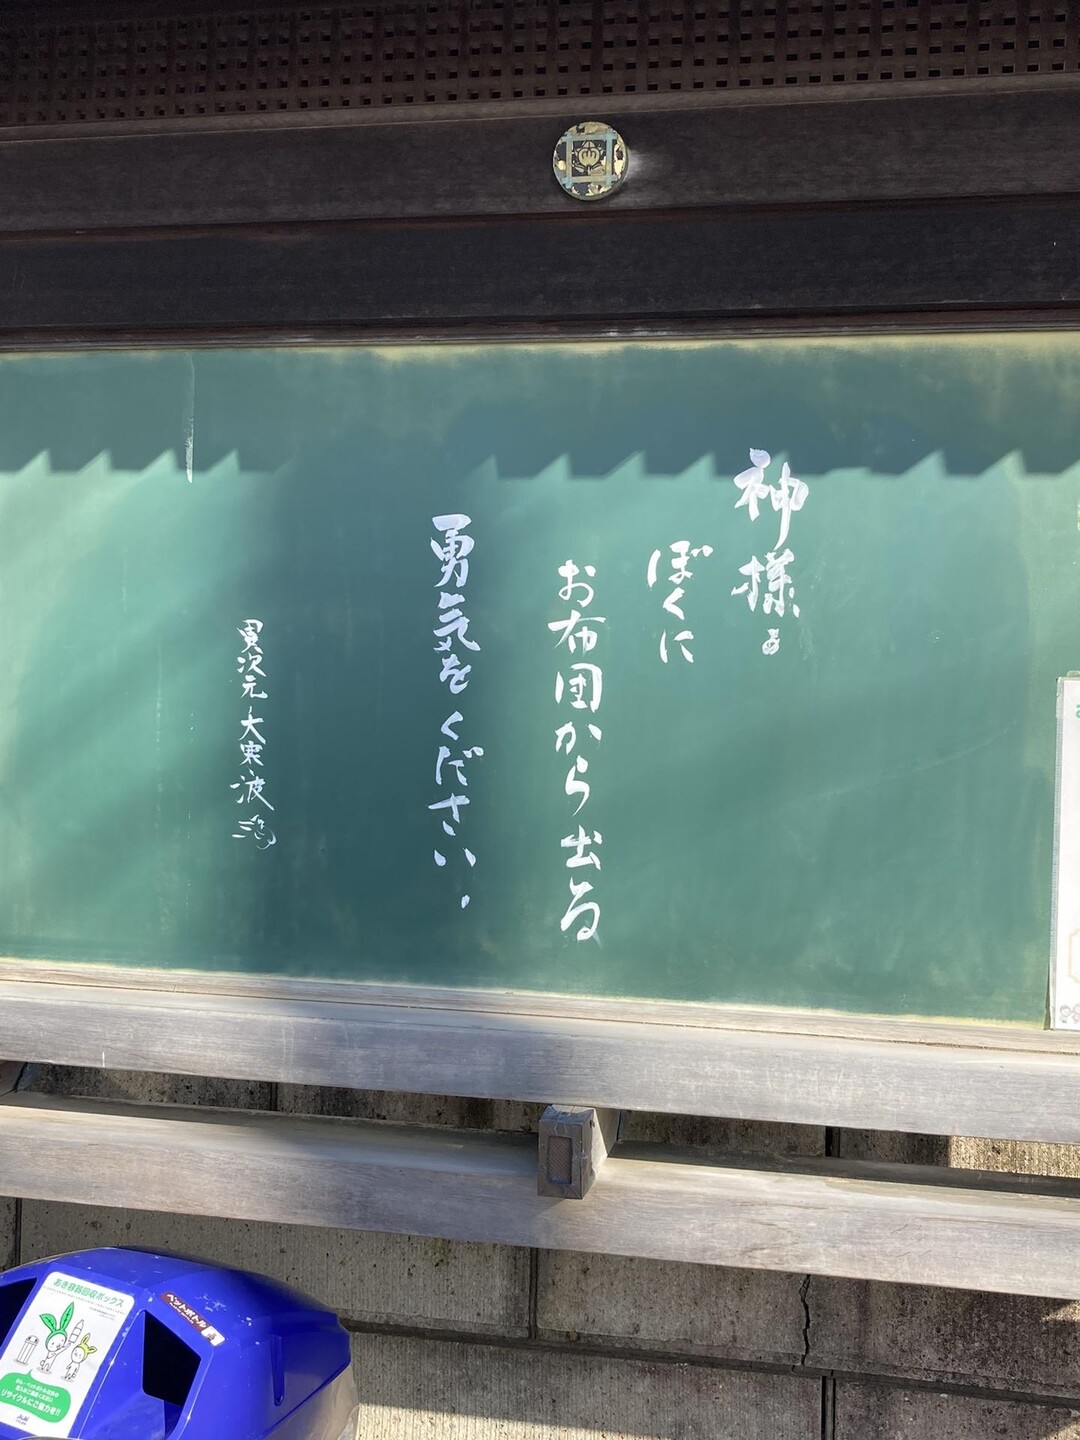 神様ぁ
ぼくに
お布団から出る
勇気をください．
異次元大寒波
あき容器回収ボックス
ペットボトル
リサイクルにご協力を!!